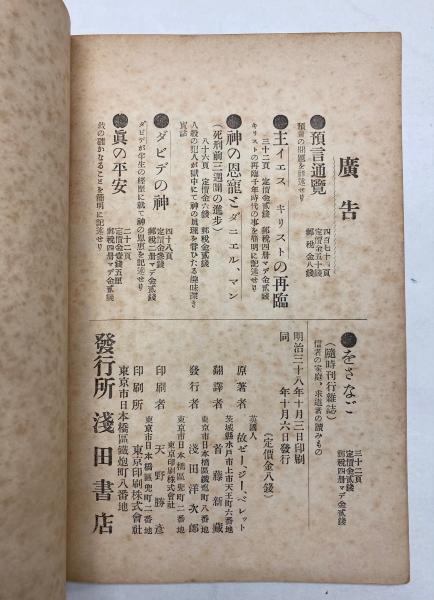 廣告
●預言通覽 四百七十一頁 定價金五十錢 郵稅金八錢
預言の問題を詳述せり
●主イエス、キリストの再臨
三十二頁 定價金貳錢 郵稅四册マデ金貳錢
キリストの再臨千年時代の事を簡明に記述せり
●神の恩寵とダニエル、マン
(死刑前三週間の進步)
八十六頁 定價金六錢 郵稅金貳錢
人殺の犯人が獄中にて神の眞理を晉ひたる趣味深き
實話
●ダビデの神 四十八頁 定價金參錢 郵稅二册マデ金貳錢
ダビデが半生の經歷に就て神の恩惠を記述せり
●眞の平安 二十二頁 定價金壹錢五厘 郵稅四册マデ金貳錢
救の確かなることを簡明に記述せり
●をさなご 三十二頁 定價金貳錢 郵稅四册マデ金貳錢
(隨時刊行雜誌)
信者の家庭、求道者の讀みもの
明治三十八年十月三日印刷
同 年十月六日發行
(定價金八錢)
英國人
原著者 故ゼー、ジー、ベレット
茨城縣水戶市上市天王町六番地
翻譯者 首藤新藏
東京市日本橋區鐵炮町八番地
發行者 淺田洋次郎
東京市日本橋區兜町二番地
東京印刷株式會社
印刷者 天野勝彥
東京市日本橋區兜町二番地
印刷所 東京印刷株式會社
東京市日本橋區鐵炮町八番地
發行所 淺田書店